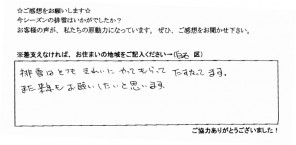 ☆ご感想をお願いします☆
今シーズンの排雪はいかがでしたか?
お客様の声が、私たちの原動力になっています。ぜひ、ご感想をお聞かせ下さい。
※差支えなければ、お住まいの地域をご記入ください→(白石 区)
排雪はとても きれいに やってもらって たすかってます。
また来年もお願いしたいと思います。
ご協力ありがとうございました!